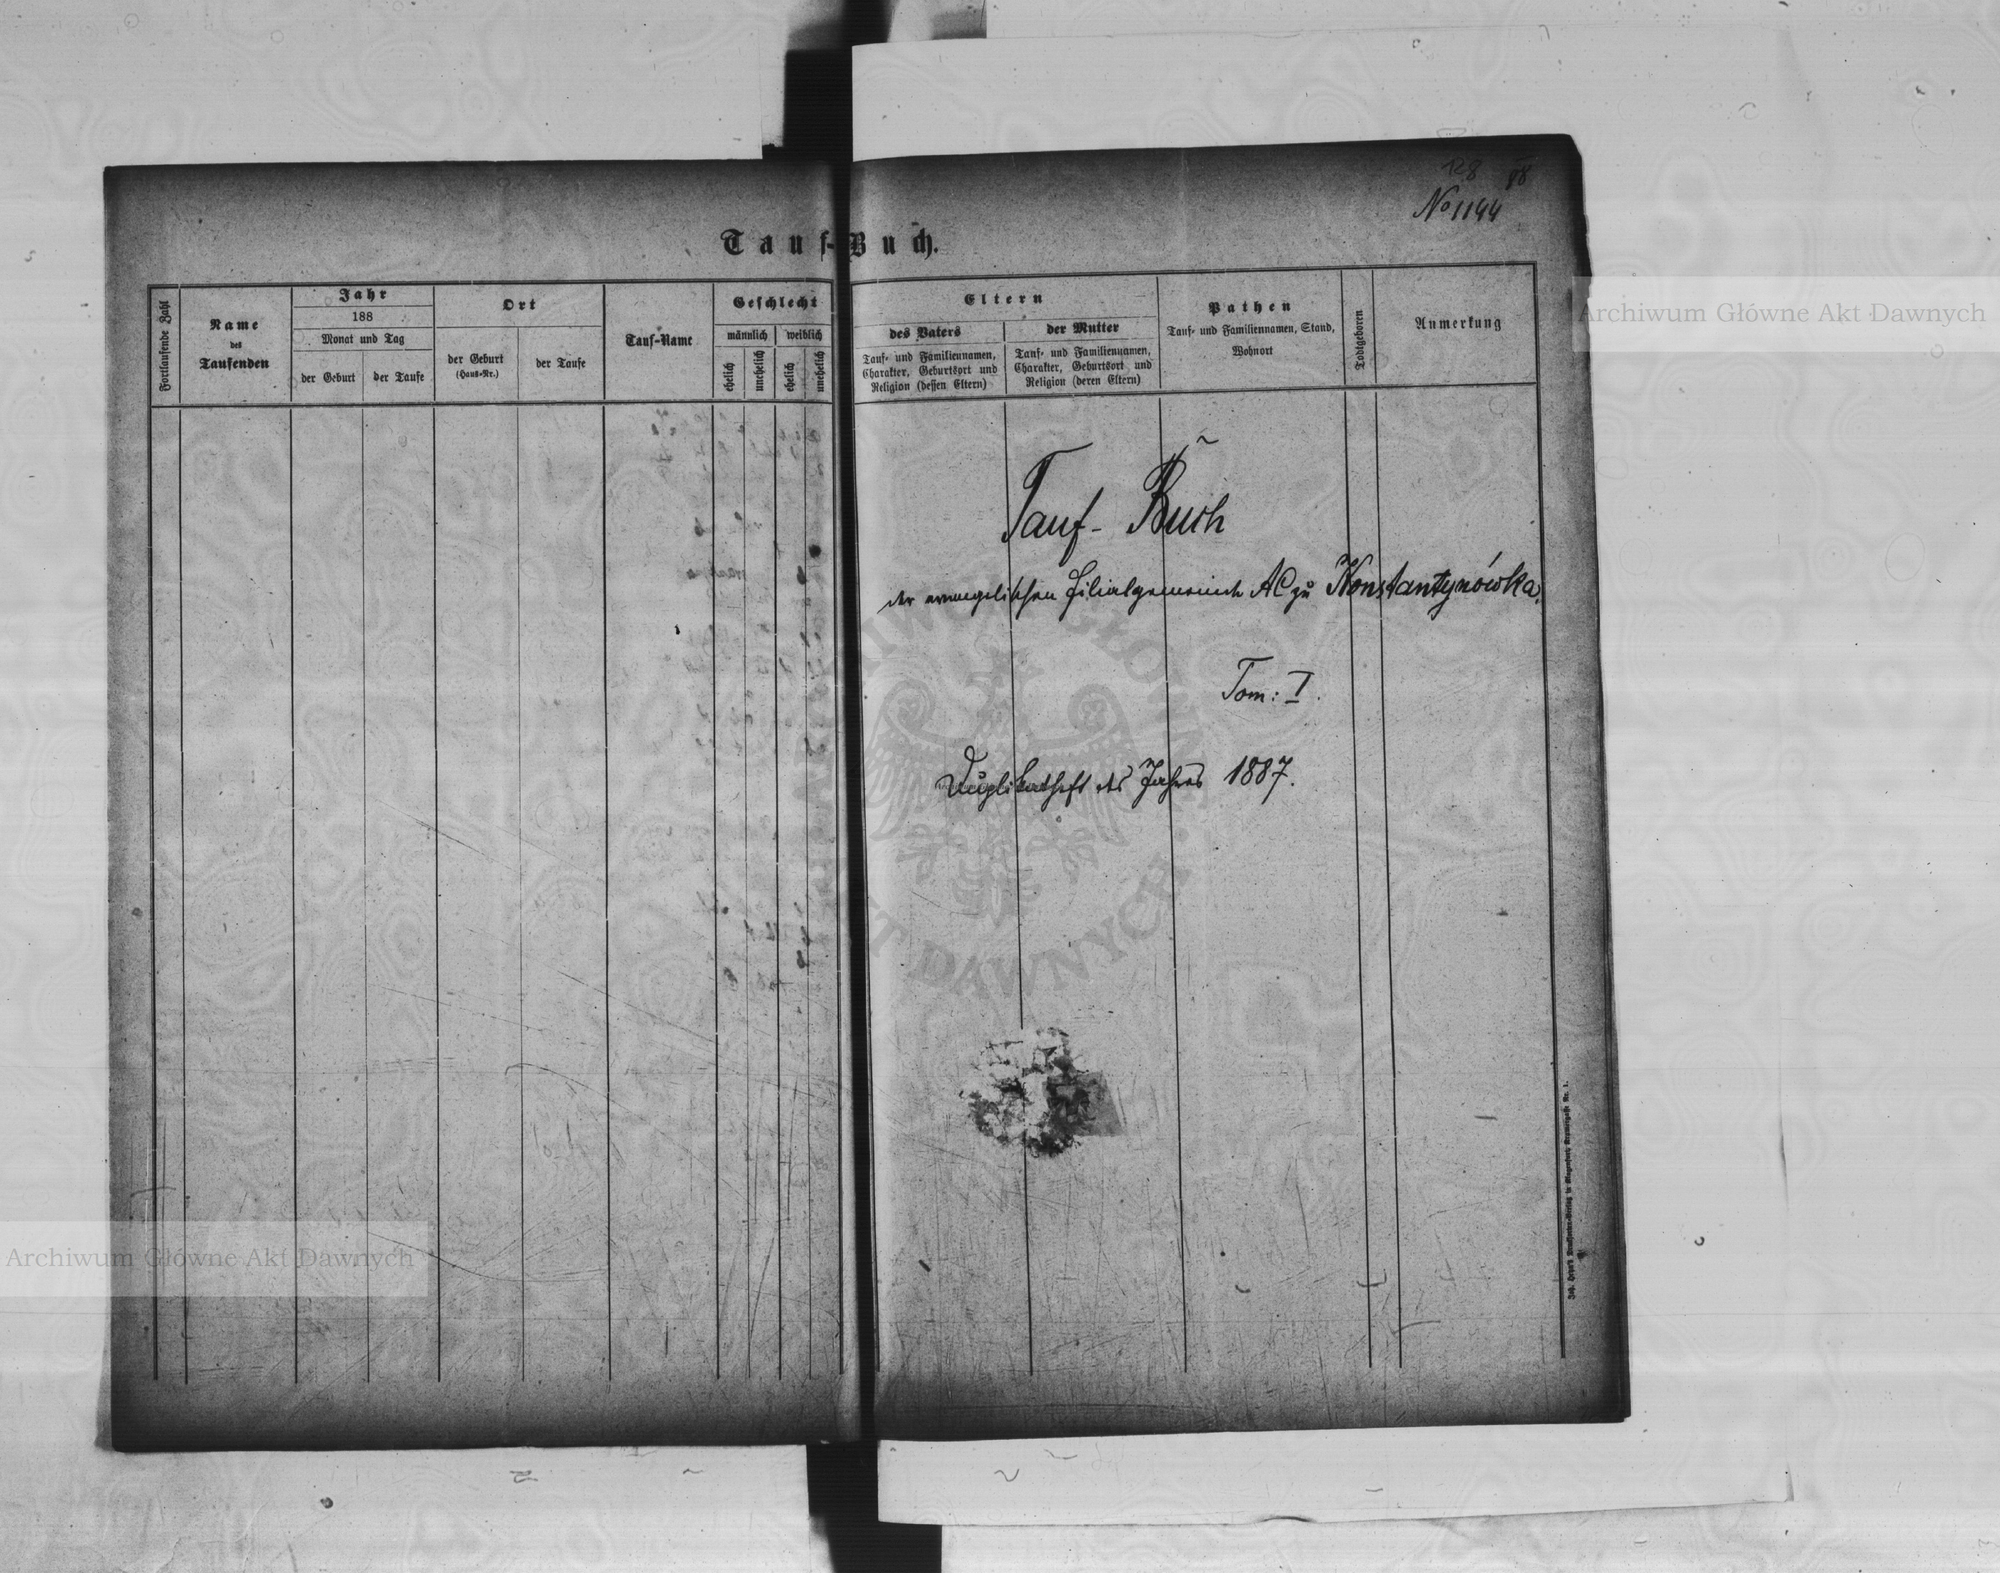 128 98
No 1144
Tauf-Buch.
Fortlaufende Zahl
Name
des
Taufenden
Jahr
188
Monat und Tag
der Geburt
der Taufe
Ort
der Geburt
(Haus-Nr.)
der Taufe
Tauf-Name
Geschlecht
männlich
weiblich
ehelich
unehelich
ehelich
unehelich
Eltern
des Vaters
Tauf- und Familiennamen,
Charakter, Geburtsort und
Religion (dessen Eltern)
der Mutter
Tauf- und Familiennamen,
Charakter, Geburtsort und
Religion (deren Eltern)
Pathen
Tauf- und Familiennamen, Stand,
Wohnort
Todtgeboren
Anmerkung
Tauf- Buch
der evangelischen Filialgemeinde AC zu Konstantynówka.
Tom: I.
Duplikatheft des Jahres 1887.
Archiwum Główne Akt Dawnych
Archiwum Główne Akt Dawnych
ARCHIWUM GŁÓWNE AKT DAWNYCH